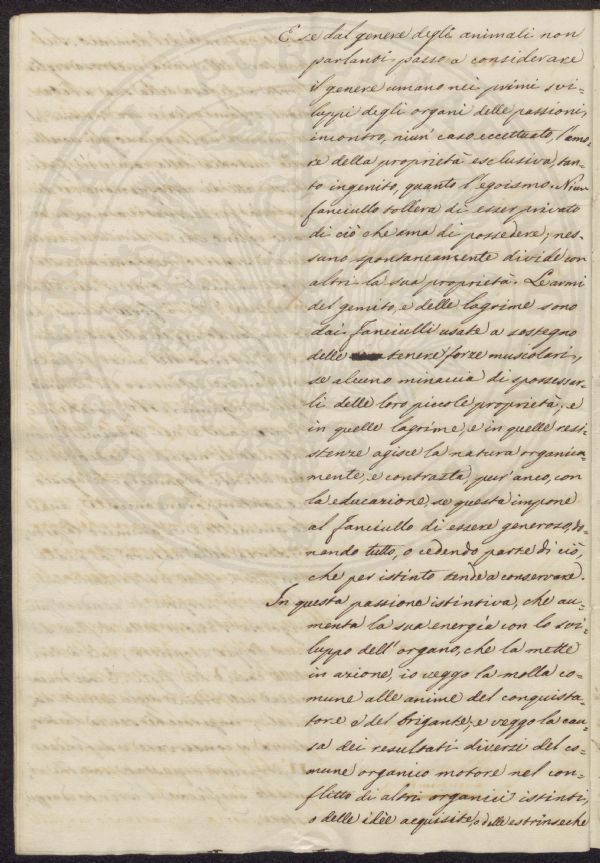 E se dal genere degli animali non
parlanti passo a considerare
il genere umano nei primi svi-
luppi degli organi delle passioni,
incontro, niun' caso eccettuato, l'amo-
re della proprietà esclusiva tan-
to ingenito, quanto l'egoismo. Niun
fanciullo tollera di esser privato
di ciò che ama di possedere; nes-
suno spontaneamente divide con
altri la sua proprietà. Le armi
del gemito, e delle lagrime sono
dai fanciulli usate a sostegno
delle tenere forze muscolari,
se alcuno minaccia di spossesser-
li delle loro piccole proprietà; e
in quelle lagrime, e in quelle resi-
stenze agisce la natura organica-
mente, e contrasta, pur'anco, con
la educazione, se questa impone
al fanciullo di essere generoso, do-
nando tutto, o cedendo parte di ciò,
che per istinto tende a conservare.
In questa passione istintiva, che au-
menta la sua energia con lo svi-
luppo dell'organo, che la mette
in azione, io veggo la molla co-
mune alle anime del conquista-
tore e del brigante; e veggo la cau-
sa dei resultati diversi del co-
mune organico motore nel con-
flitto di altri organici istinti,
o delle idee acquisite, o delle estrinseche